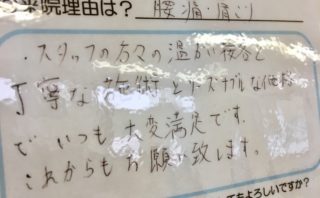 来院理由は? 腰痛・肩こり
・スタッフの方々の温かい接客と
丁寧な施術とリーズナブルな価格
で いつも大変満足です。
これからもお願い致します。
てもよろしいですか?